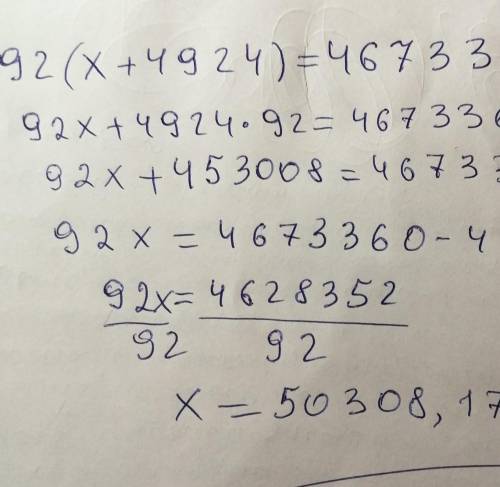 92(x+4924)=46733
92x+4924·92=467336
92x+453008=46733
92x=4673360-4
92x=4628352
92 92
x=50308,17